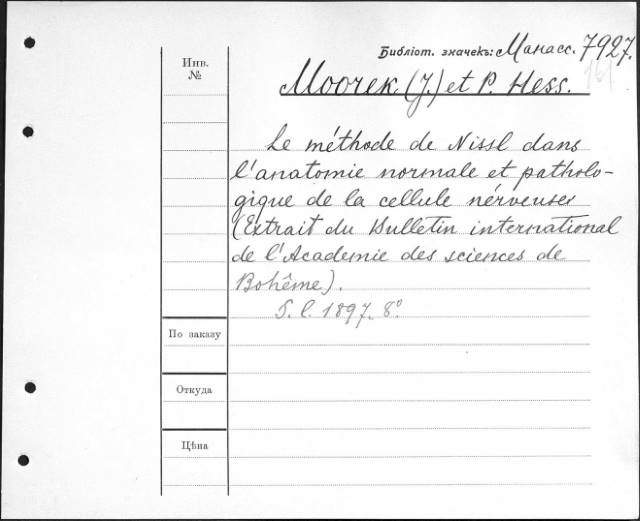 Библіот. значекъ: Манасс. 7927.
161
Инв.
№
Moorek (J.) et P. Hess.
Le méthode de Nissl dans
l'anatomie normale et patholo-
gique de la cellule nérveuses
(Extrait du Bulletin international
de l'Academie des sciences de
Bohême).
S. l. 1897. 8°
По заказу
Откуда
Цѣна